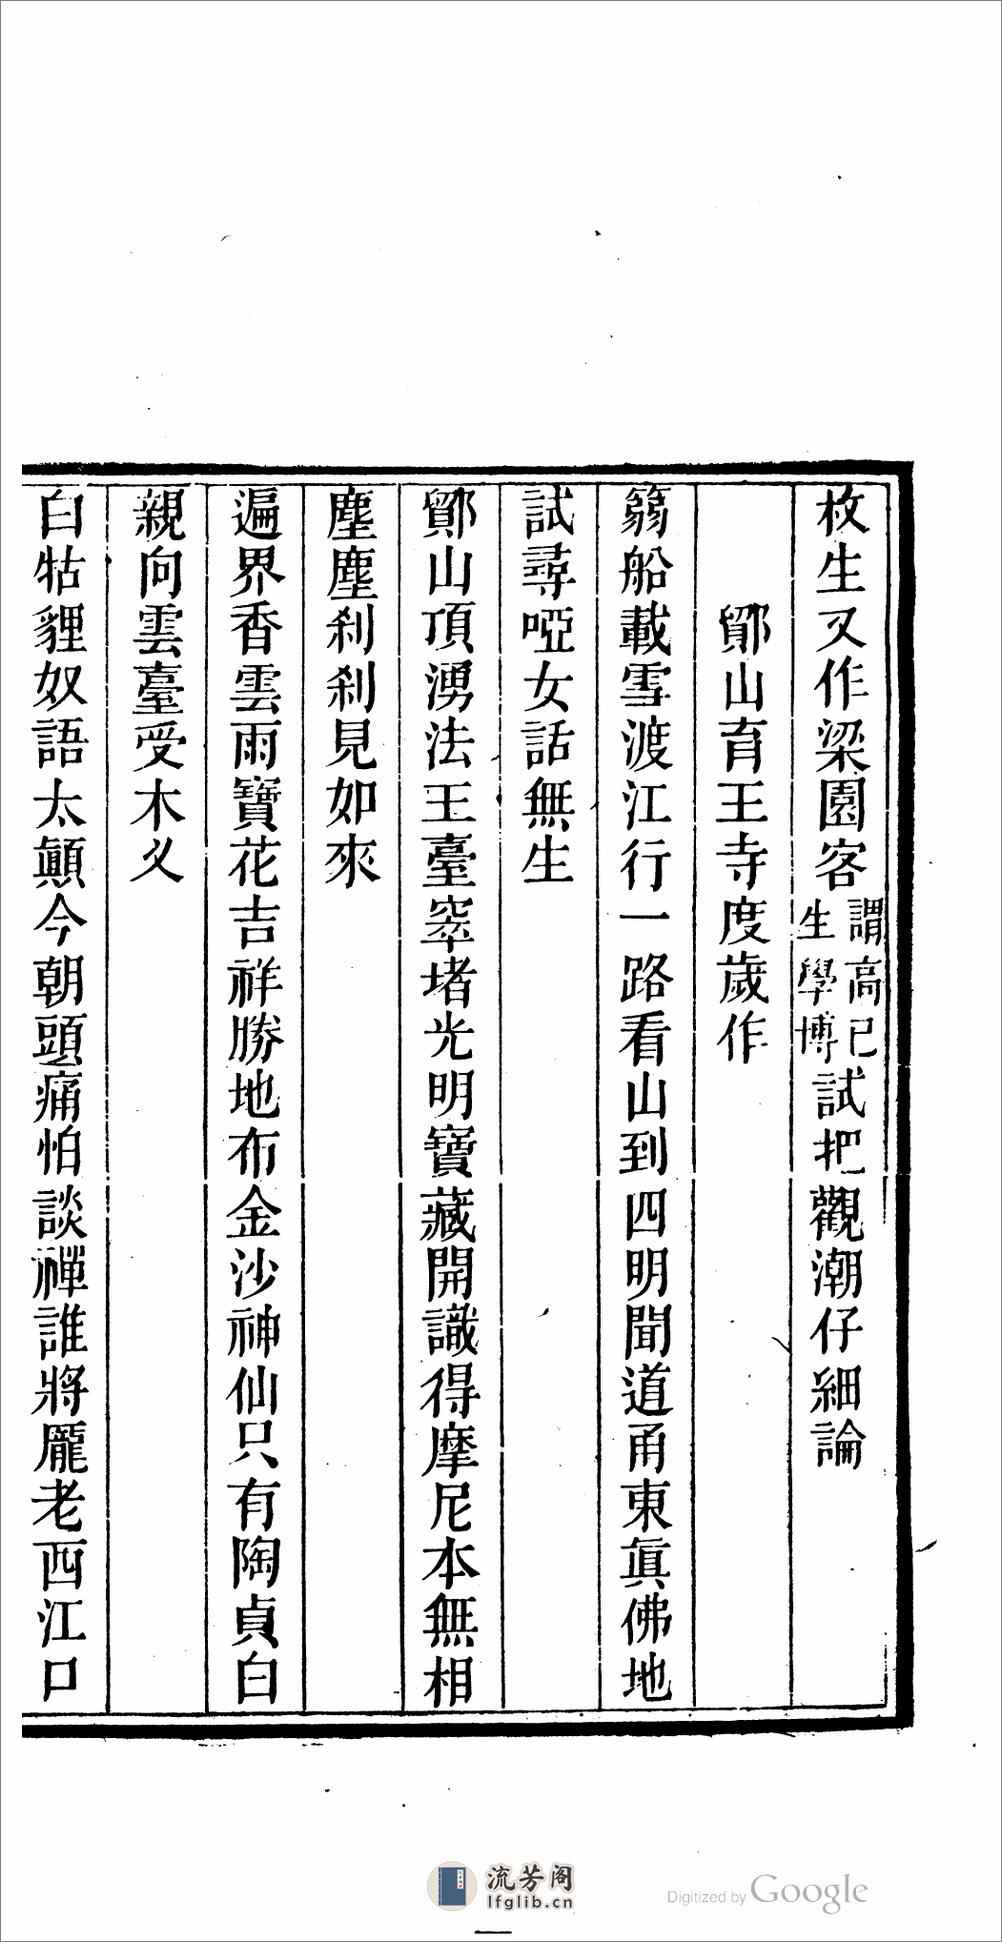 枚生又作梁園客謂高已生學博試把觀潮仔細論
鄮山育王寺度歲作
篛船載雪渡江行一路看山到四明聞道甬東眞佛地
試尋啞女話無生
鄮山頂湧法王臺窣堵光明寶藏開識得摩尼本無相
塵塵刹刹見如來
遍界香雲雨寶花吉祥勝地布金沙神仙只有陶貞白
親向雲臺受木义
白牯貍奴語太顛今朝頭痛怕談禪誰將龐老西江口
流芳阁
lfglib.cn
Digitized by Google